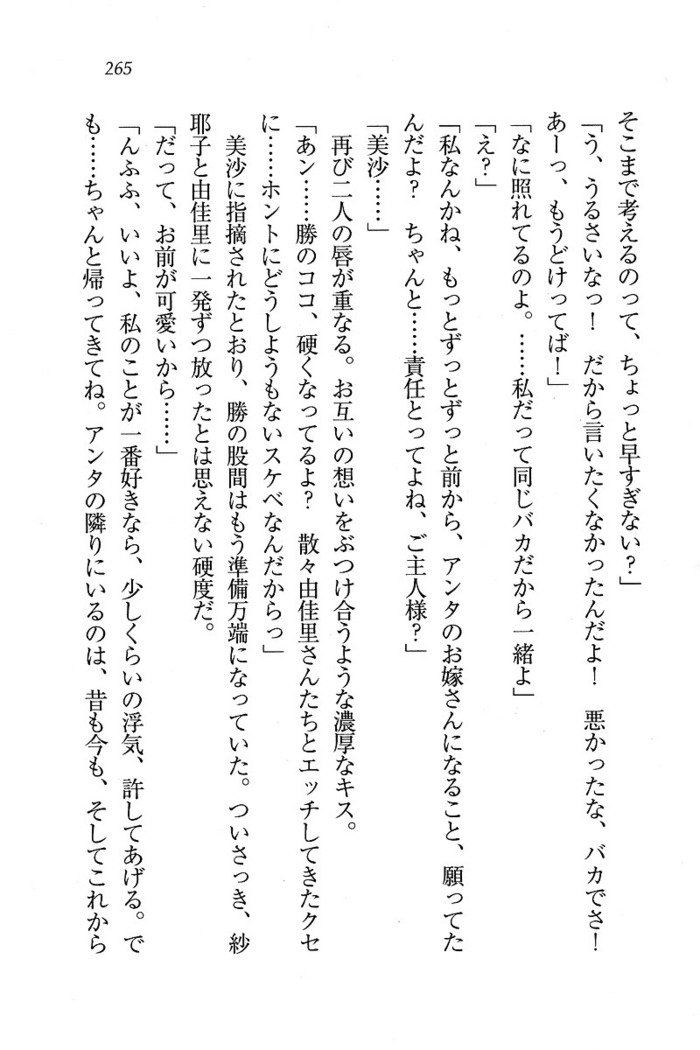 265
そこまで考えるのって、ちょっと早すぎない?」
「う、うるさいなっ! だから言いたくなかったんだよ! 悪かったな、バカでさ!
あーっ、もうどけってば!」
「なに照れてるのよ。……私だって同じバカだから一緒よ」
「え?」
「私なんかね、もっとずっとずっと前から、アンタのお嫁さんになること、願ってた
んだよ? ちゃんと……責任とってよね、ご主人様?」
「美沙……」
再び二人の唇が重なる。お互いの想いをぶつけ合うような濃厚なキス。
「あン……勝のココ、硬くなってるよ? 散々由佳里さんたちとエッチしてきたクセ
に……ホントにどうしようもないスケベなんだからっ」
美沙に指摘されたとおり、勝の股間はもう準備万端になっていた。ついさっき、紗
耶子と由佳里に一発ずつ放ったとは思えない硬度だ。
「だって、お前が可愛いから……」
「んふふ、いいよ、私のことが一番好きなら、少しくらいの浮気、許してあげる。で
も……ちゃんと帰ってきてね。アンタの隣りにいるのは、昔も今も、そしてこれから